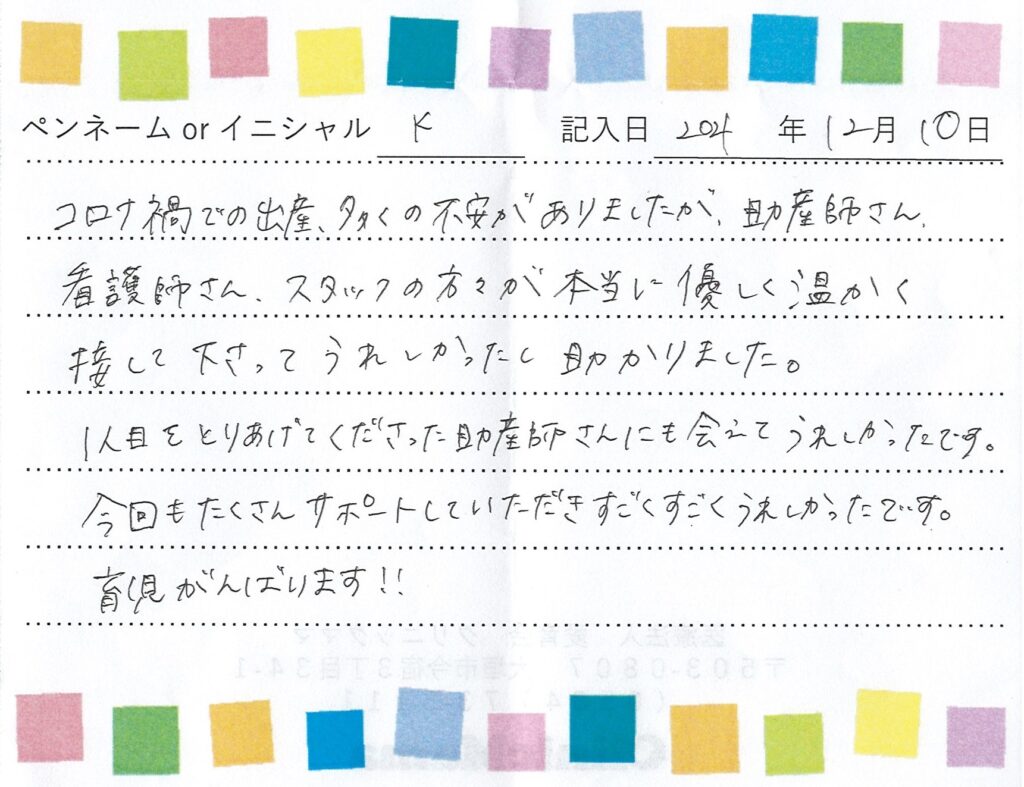 ペンネーム or イニシャル K 記入日 204 年 12月 10日
コロナ禍での出産、多くの不安がありましたが、助産師さん、
看護師さん、スタッフの方々が本当に優しく温かく
接して下さってうれしかったし助かりました。
1人目をとりあげてくださった助産師さんにも会えてうれしかったです。
今回もたくさんサポートしていただきすごくすごくうれしかったです。
育児がんばります!!